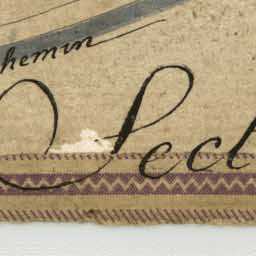 chemin
Sect